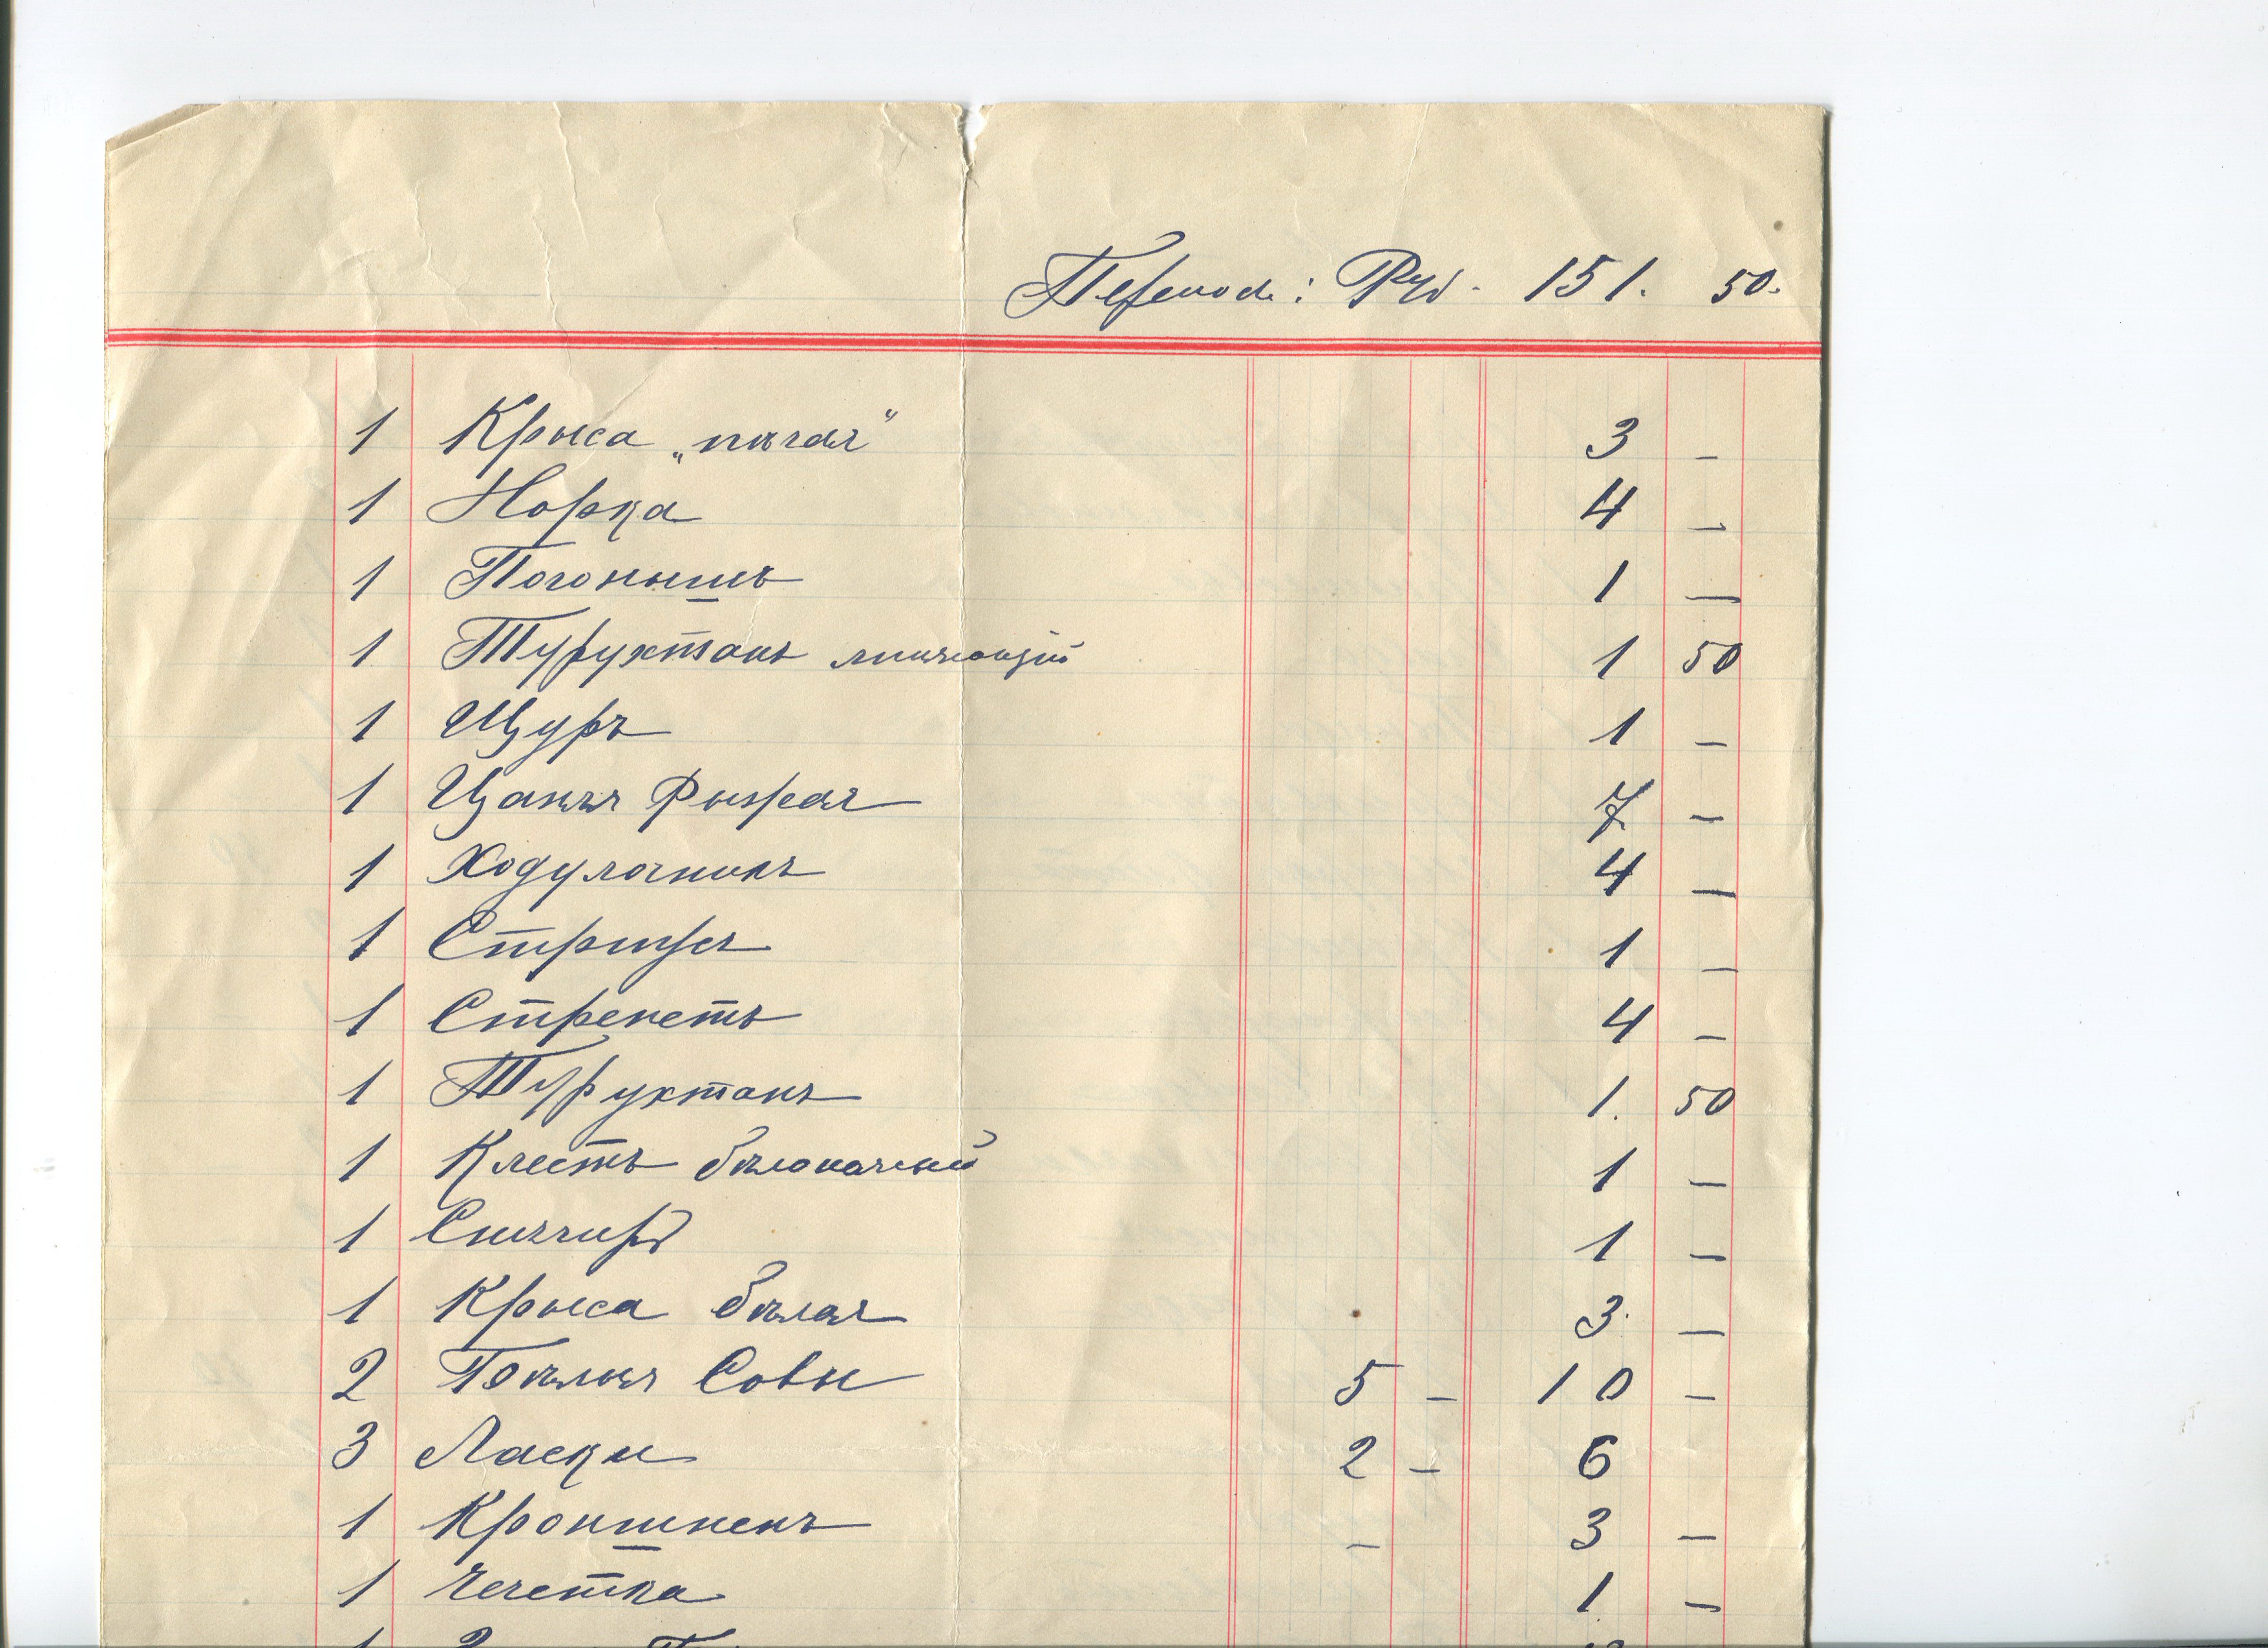 Переносъ: Руб. 151. 50.
1 Крыса „пѣгая" 3 –
1 Норка 4 –
1 Погонышъ 1 –
1 Турухтанъ линяющій 1 50
1 Щуръ 1 –
1 Цапля Рыжая 7 –
1 Ходулочникъ 4 –
1 Стрижъ 1 –
1 Стрепетъ 4 –
1 Турухтанъ 1. 50
1 Клестъ 1 –
1 Снѣгирь 1 –
1 Крыса бѣлая 3. –
2 Совы 5 – 10 –
3 Ласки 2 – 6
1 Кроншнепъ – 3 –
1 Чечетка 1 –